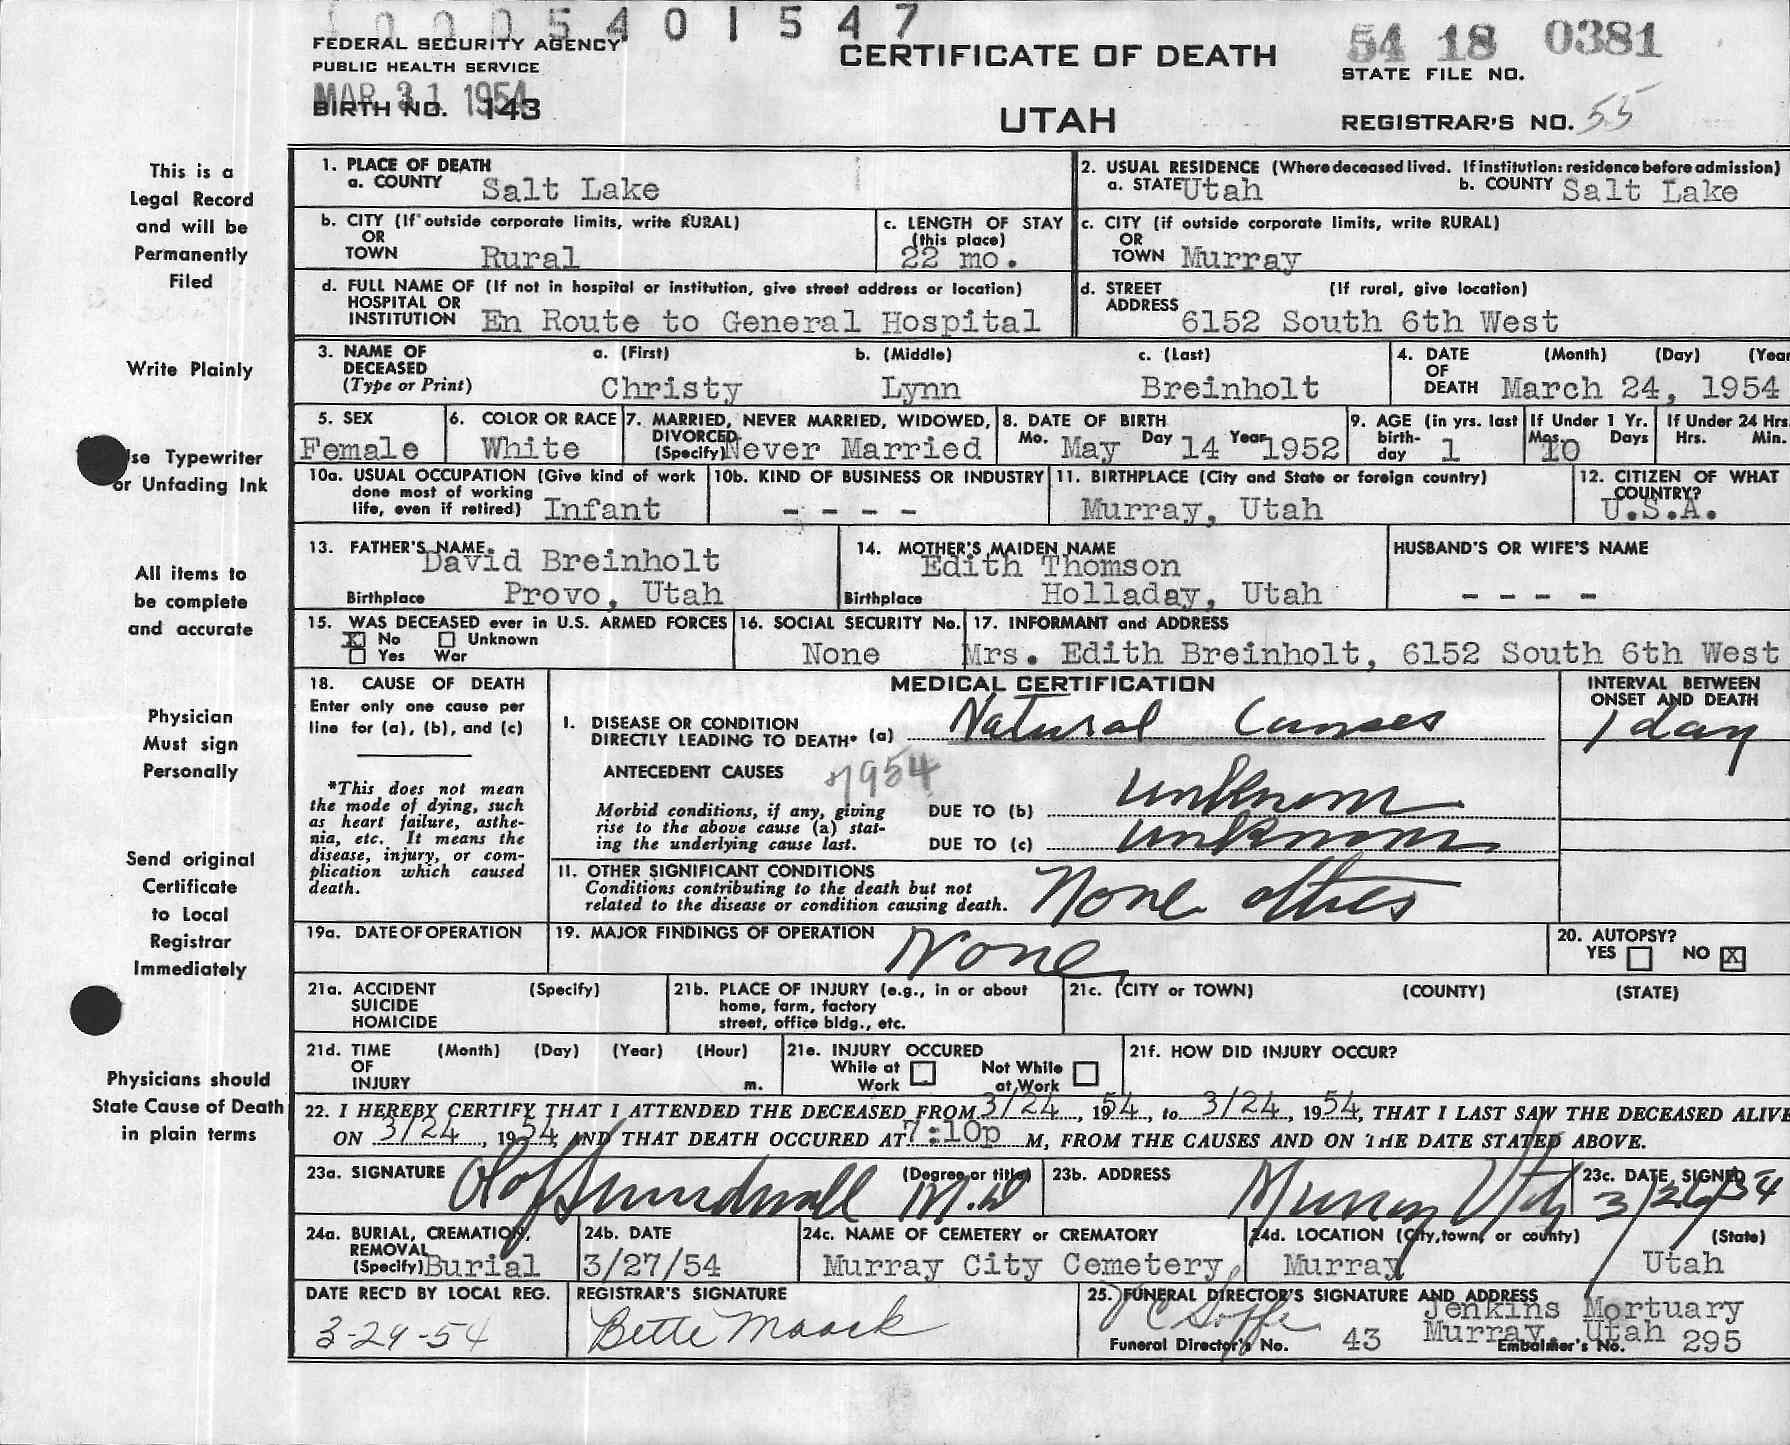 10005401547
FEDERAL SECURITY AGENCY
PUBLIC HEALTH SERVICE
MAR 31 1954
BIRTH NO. 143
CERTIFICATE OF DEATH
UTAH
54 18 0381
STATE FILE NO.
REGISTRAR'S NO. 55
This is a
Legal Record
and will be
Permanently
Filed
Write Plainly
se Typewriter
or Unfading Ink
All items to
be complete
and accurate
Physician
Must sign
Personally
Send original
Certificate
to Local
Registrar
Immediately
Physicians should
State Cause of Death
in plain terms
1. PLACE OF DEATH
a. COUNTY Salt Lake
2. USUAL RESIDENCE (Where deceased lived. If institution: residence before admission)
a. STATE Utah b. COUNTY Salt Lake
b. CITY (If outside corporate limits, write RURAL)
OR
TOWN Rural
c. LENGTH OF STAY
(this place)
22 mo.
c. CITY (if outside corporate limits, write RURAL)
OR
TOWN Murray
d. FULL NAME OF (If not in hospital or institution, give street address or location)
HOSPITAL OR
INSTITUTION En Route to General Hospital
d. STREET (If rural, give location)
ADDRESS
6152 South 6th West
3. NAME OF a. (First) b. (Middle) c. (Last)
DECEASED
(Type or Print) Christy Lynn Breinholt
4. DATE (Month) (Day) (Year
OF
DEATH March 24, 1954
5. SEX
Female
6. COLOR OR RACE
White
7. MARRIED, NEVER MARRIED, WIDOWED,
DIVORCED
(Specify) Never Married
8. DATE OF BIRTH
Mo. May Day 14 Year 1952
9. AGE (in yrs. last
birth-
day 1
If Under 1 Yr.
Mos. Days
10
If Under 24 Hrs.
Hrs. Min.
10a. USUAL OCCUPATION (Give kind of work
done most of working
life, even if retired) Infant
10b. KIND OF BUSINESS OR INDUSTRY
- - - -
11. BIRTHPLACE (City and State or foreign country)
Murray, Utah
12. CITIZEN OF WHAT
COUNTRY?
U.S.A.
13. FATHER'S NAME
David Breinholt
Birthplace Provo, Utah
14. MOTHER'S MAIDEN NAME
Edith Thomson
Birthplace Holladay, Utah
HUSBAND'S OR WIFE'S NAME
- - - -
15. WAS DECEASED ever in U.S. ARMED FORCES
X No Unknown
Yes War
16. SOCIAL SECURITY No.
None
17. INFORMANT and ADDRESS
Mrs. Edith Breinholt, 6152 South 6th West
18. CAUSE OF DEATH
Enter only one cause per
line for (a), (b), and (c)
*This does not mean
the mode of dying, such
as heart failure, asthe-
nia, etc. It means the
disease, injury, or com-
plication which caused
death.
MEDICAL CERTIFICATION
I. DISEASE OR CONDITION
DIRECTLY LEADING TO DEATH* (a) Natural Causes
ANTECEDENT CAUSES
7954
Morbid conditions, if any, giving
rise to the above cause (a) stat-
ing the underlying cause last.
DUE TO (b) unknown
DUE TO (c) unknown
INTERVAL BETWEEN
ONSET AND DEATH
1 day
11. OTHER SIGNIFICANT CONDITIONS
Conditions contributing to the death but not
related to the disease or condition causing death.
None other
19a. DATE OF OPERATION
19. MAJOR FINDINGS OF OPERATION
None
20. AUTOPSY?
YES NO X
21a. ACCIDENT (Specify)
SUICIDE
HOMICIDE
21b. PLACE OF INJURY (e.g., in or about
home, farm, factory
street, office bldg., etc.
21c. (CITY or TOWN) (COUNTY) (STATE)
21d. TIME (Month) (Day) (Year) (Hour)
OF
INJURY m.
21e. INJURY OCCURED
While at Work Not While at Work
21f. HOW DID INJURY OCCUR?
22. I HEREBY CERTIFY THAT I ATTENDED THE DECEASED FROM 3/24, 1954, to 3/24, 1954, THAT I LAST SAW THE DECEASED ALIVE
ON 3/24, 1954, AND THAT DEATH OCCURED AT 7:10p M, FROM THE CAUSES AND ON THE DATE STATED ABOVE.
23a. SIGNATURE (Degree or title)
Olof Sundwall M.D
23b. ADDRESS
Murray Utah
23c. DATE SIGNED
3/26/54
24a. BURIAL, CREMATION,
REMOVAL
(Specify) Burial
24b. DATE
3/27/54
24c. NAME OF CEMETERY or CREMATORY
Murray City Cemetery
24d. LOCATION (City, town, or county) (State)
Murray Utah
DATE REC'D BY LOCAL REG.
3-29-54
REGISTRAR'S SIGNATURE
Bette Maack
25. FUNERAL DIRECTOR'S SIGNATURE AND ADDRESS
Jenkins Mortuary
Murray, Utah
Funeral Director's No. 43 Embalmer's No. 295